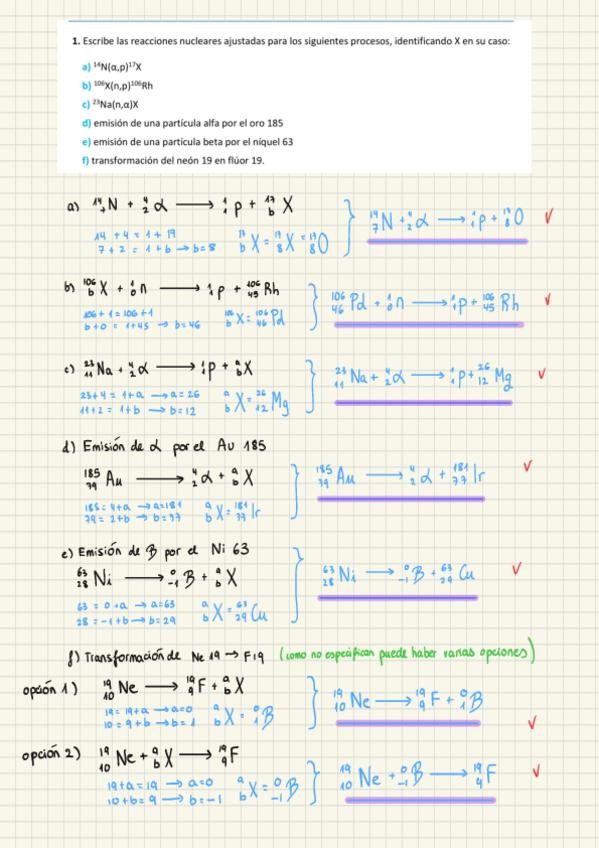 1. Escribe las reacciones nucleares ajustadas para los siguientes procesos, identificando X en su caso:
a) ¹⁴N(α,p)¹⁷X
b) ¹⁰⁶X(n,p)¹⁰⁶Rh
c) ²³Na(n,α)X
d) emisión de una partícula alfa por el oro 185
e) emisión de una partícula beta por el níquel 63
f) transformación del neón 19 en flúor 19.
a) ¹⁴₇N + ⁴₂α ⟶ ¹₁p + ¹⁷_bX
14 + 4 = 1 + 17
7 + 2 = 1 + b → b = 8 ¹⁷_bX = ¹⁷₈X = ¹⁷₈O
¹⁴₇N + ⁴₂α ⟶ ¹₁p + ¹⁷₈O ✓
b) ¹⁰⁶_bX + ¹₀n ⟶ ¹₁p + ¹⁰⁶₄₅Rh
106 + 1 = 106 + 1
b + 0 = 1 + 45 → b = 46 ¹⁰⁶_bX = ¹⁰⁶₄₆Pd
¹⁰⁶₄₆Pd + ¹₀n ⟶ ¹₁p + ¹⁰⁶₄₅Rh ✓
c) ²³₁₁Na + ⁴₂α ⟶ ¹₁p + ᵃ_bX
23 + 4 = 1 + a → a = 26
11 + 2 = 1 + b → b = 12 ᵃ_bX = ²⁶₁₂Mg
²³₁₁Na + ⁴₂α ⟶ ¹₁p + ²⁶₁₂Mg ✓
d) Emisión de α por el Au 185
¹⁸⁵₇₉Au ⟶ ⁴₂α + ᵃ_bX
185 = 4 + a → a = 181
79 = 2 + b → b = 77 ᵃ_bX = ¹⁸¹₇₇Ir
¹⁸⁵₇₉Au ⟶ ⁴₂α + ¹⁸¹₇₇Ir ✓
e) Emisión de B por el Ni 63
⁶³₂₈Ni ⟶ ⁰₋₁B + ᵃ_bX
63 = 0 + a → a = 63
28 = -1 + b → b = 29 ᵃ_bX = ⁶³₂₉Cu
⁶³₂₈Ni ⟶ ⁰₋₁B + ⁶³₂₉Cu ✓
f) Transformación de Ne 19 → F19 (como no especifican puede haber varias opciones)
opción 1) ¹⁹₁₀Ne ⟶ ¹⁹₉F + ᵃ_bX
19 = 19 + a → a = 0
10 = 9 + b → b = 1 ᵃ_bX = ⁰₁B
¹⁹₁₀Ne ⟶ ¹⁹₉F + ⁰₁B ✓
opción 2) ¹⁹₁₀Ne + ᵃ_bX ⟶ ¹⁹₉F
19 + a = 19 → a = 0
10 + b = 9 → b = -1 ᵃ_bX = ⁰₋₁B
¹⁹₁₀Ne + ⁰₋₁B ⟶ ¹⁹₉F ✓